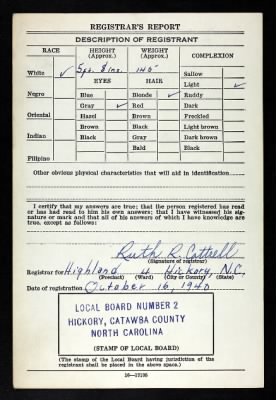 REGISTRAR'S REPORT
DESCRIPTION OF REGISTRANT
RACE HEIGHT (Approx.) WEIGHT (Approx.) COMPLEXION
White ✓ 5ft. 8 ins. 145 Sallow
EYES HAIR Light ✓
Negro Blue Blonde ✓ Ruddy
Gray ✓ Red Dark
Oriental Hazel Brown Freckled
Brown Black Light brown
Indian Black Gray Dark brown
Bald Black
Filipino
Other obvious physical characteristics that will aid in identification
I certify that my answers are true; that the person registered has read
or has had read to him his own answers; that I have witnessed his sig-
nature or mark and that all of his answers of which I have knowledge are
true, except as follows:
Ruth R. Cottrell
(Signature of registrar)
Registrar for Highland 4 Hickory, N.C.
(Precinct) (Ward) (City or County) (State)
Date of registration October 16, 1940
LOCAL BOARD NUMBER 2
HICKORY, CATAWBA COUNTY
NORTH CAROLINA
(STAMP OF LOCAL BOARD)
(The stamp of the Local Board having jurisdiction of the
registrant shall be placed in the above space.)